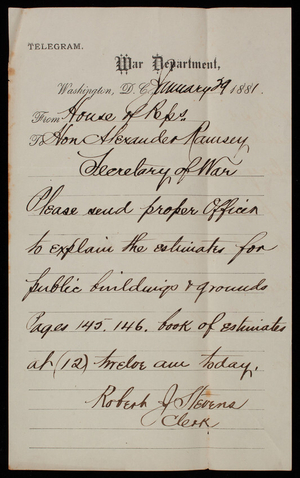 TELEGRAM.
War Department,
Washington, D. C. January 29 1881.
From House of Reps.
To Hon Alexander Ramsey
Secretary of War
Please send proper Officer
to explain the estimates for
public buildings & grounds
Pages 145. 146. book of estimates
at (12) twelve am today.
Robert J Stevens
Clerk